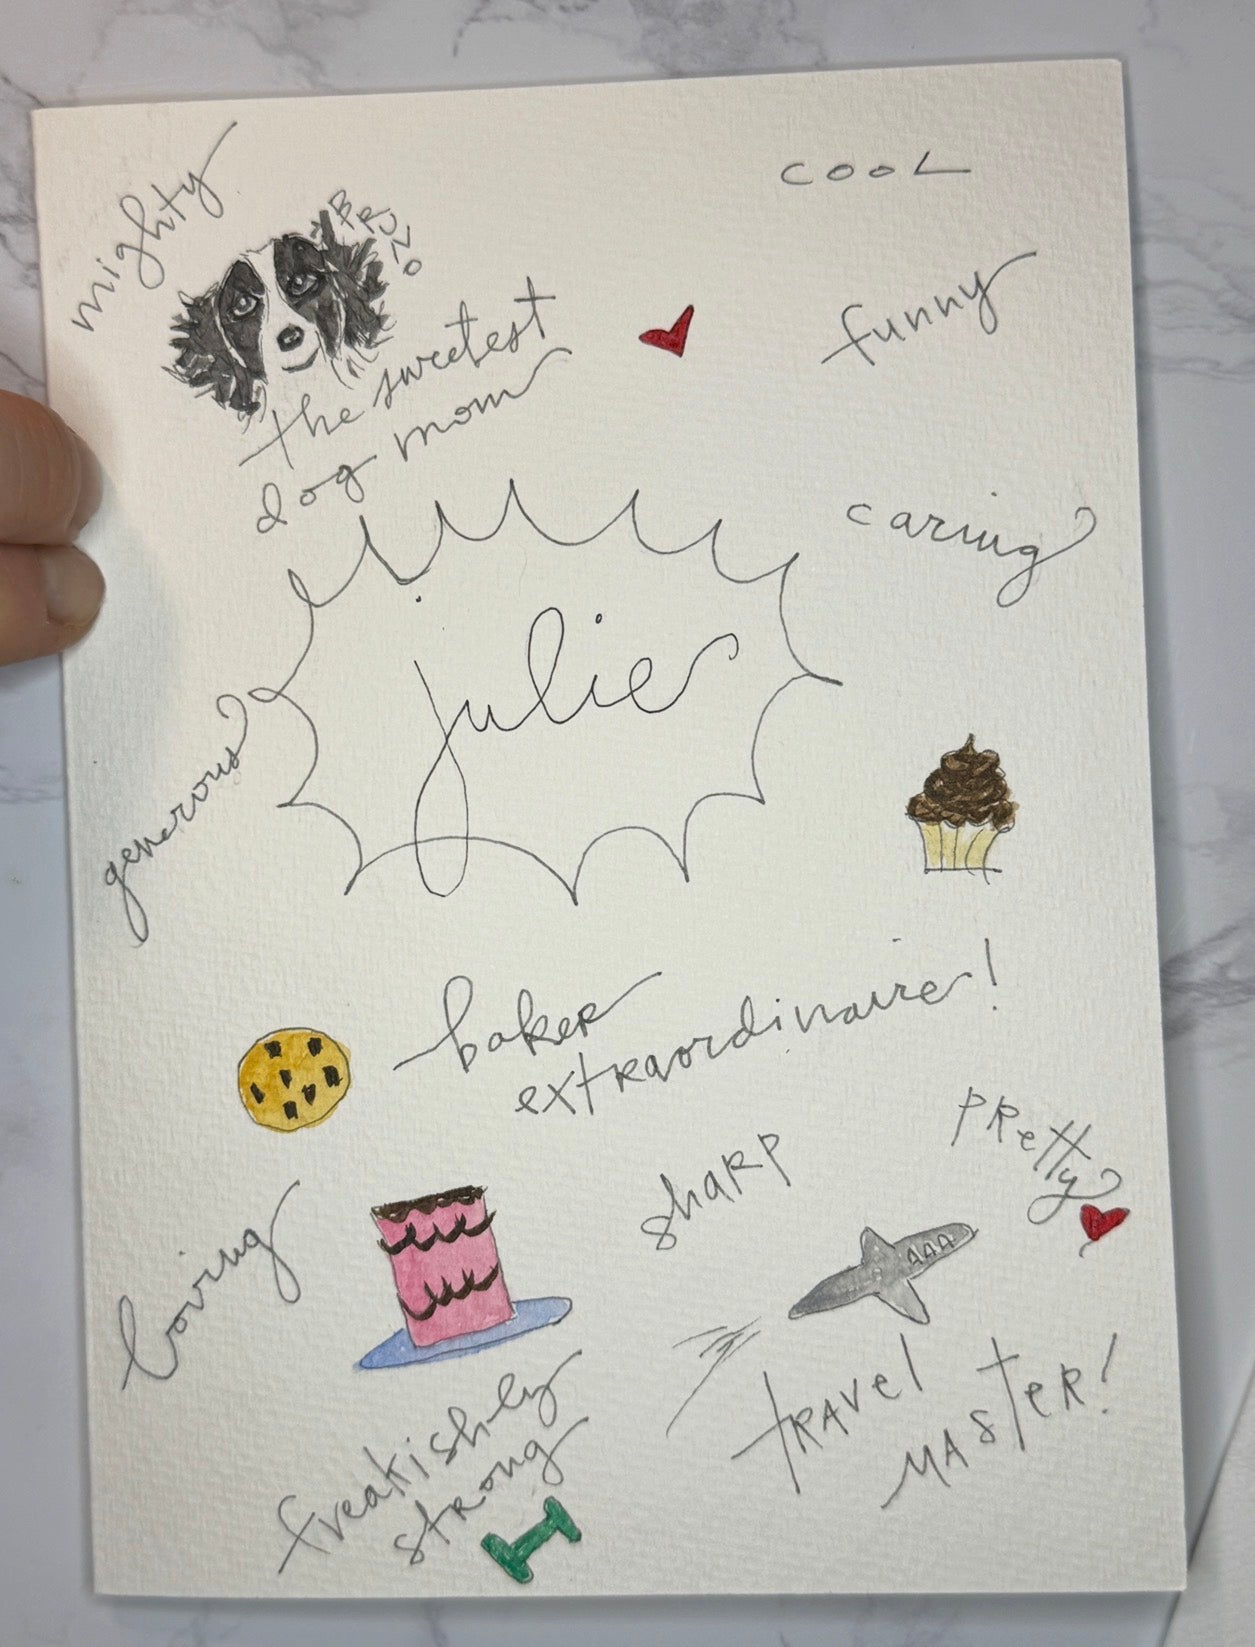 mighty
BRUNO
COOL
the sweetest
dog mom
funny
caring
julie
generous
baker
extraordinaire!
pretty
sharp
loving
travel
master!
freakishly
strong